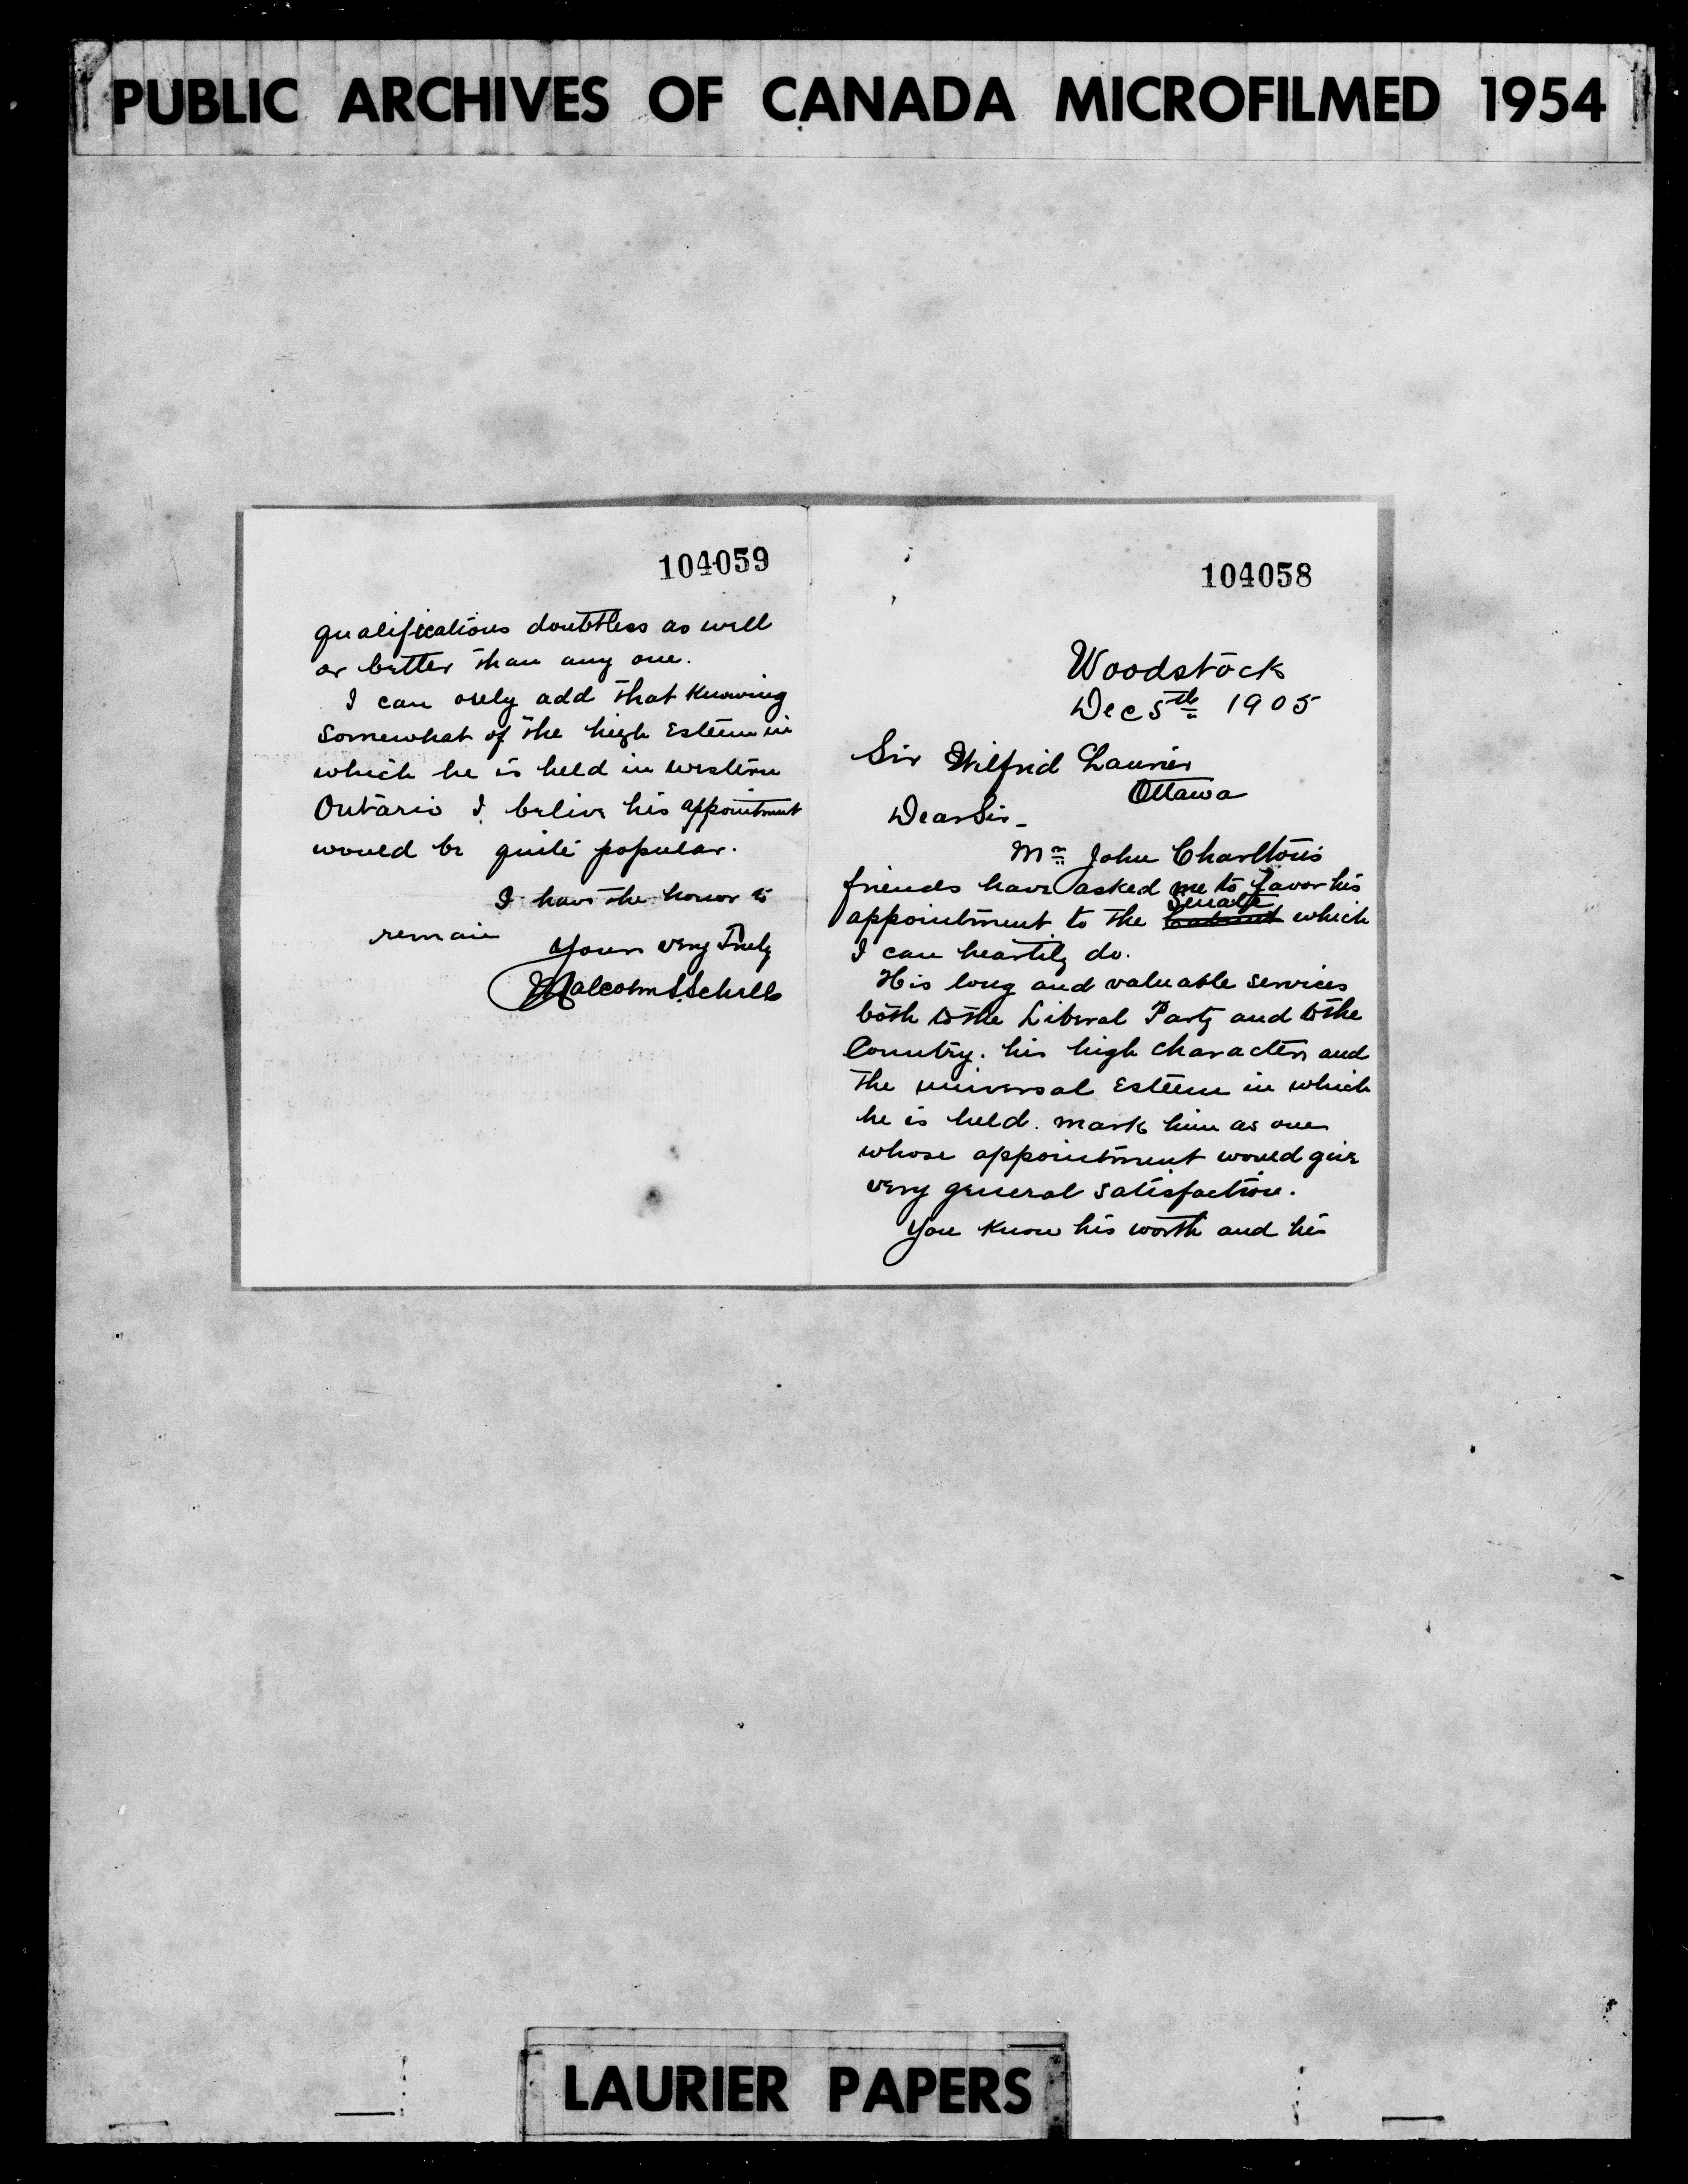 PUBLIC ARCHIVES OF CANADA MICROFILMED 1954
104058
Woodstock
Dec 5th 1905
Sir Wilfrid Laurier
Ottawa
Dear Sir -
Mr John Charlton's
friends have asked me to favor his
Senate
appointment to the Cabinet which
I can heartily do.
His long and valuable services
both to the Liberal Party and to the
Country. his high character and
the universal Esteem in which
he is held. mark him as one
whose appointment would give
very general satisfaction.
You know his worth and his
104059
qualifications doubtless as well
or better than any one.
I can only add that knowing
somewhat of the high Esteem in
which he is held in western
Ontario I belive his appointment
would be quite popular.
I have the honor to
remain
Yours very Truly
Malcolm S. Schell
LAURIER PAPERS